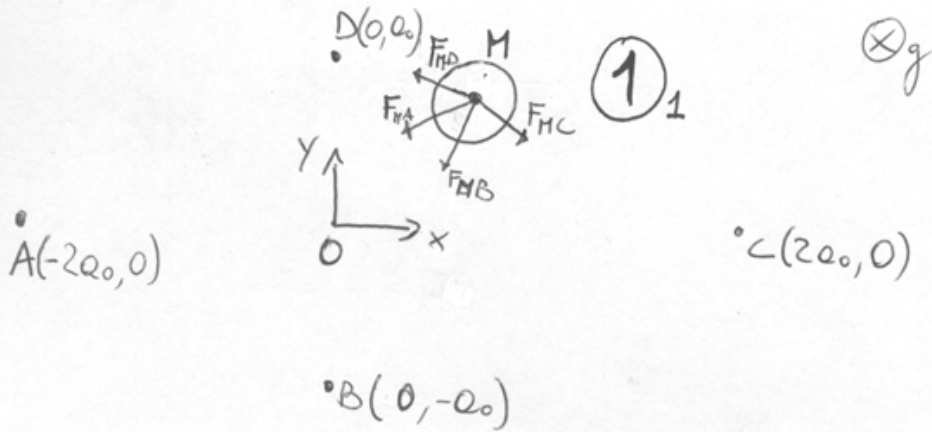 D(0,a₀)
M
F_MD
①₁
⊗g
F_MA
F_MC
F_MB
Y
O
X
A(-2a₀,0)
C(2a₀,0)
B(0,-a₀)